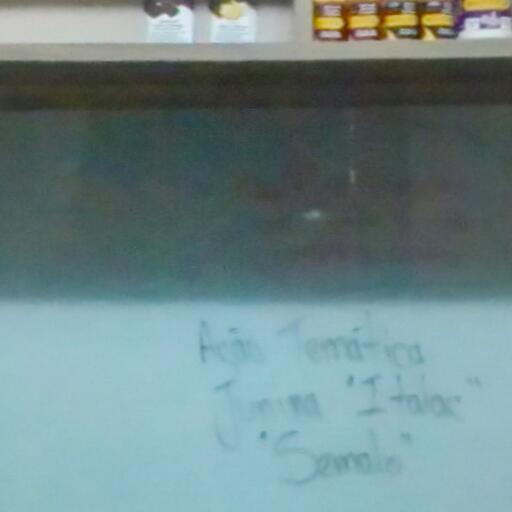 Ação Temática
Junina "Italac"
"Semalo"